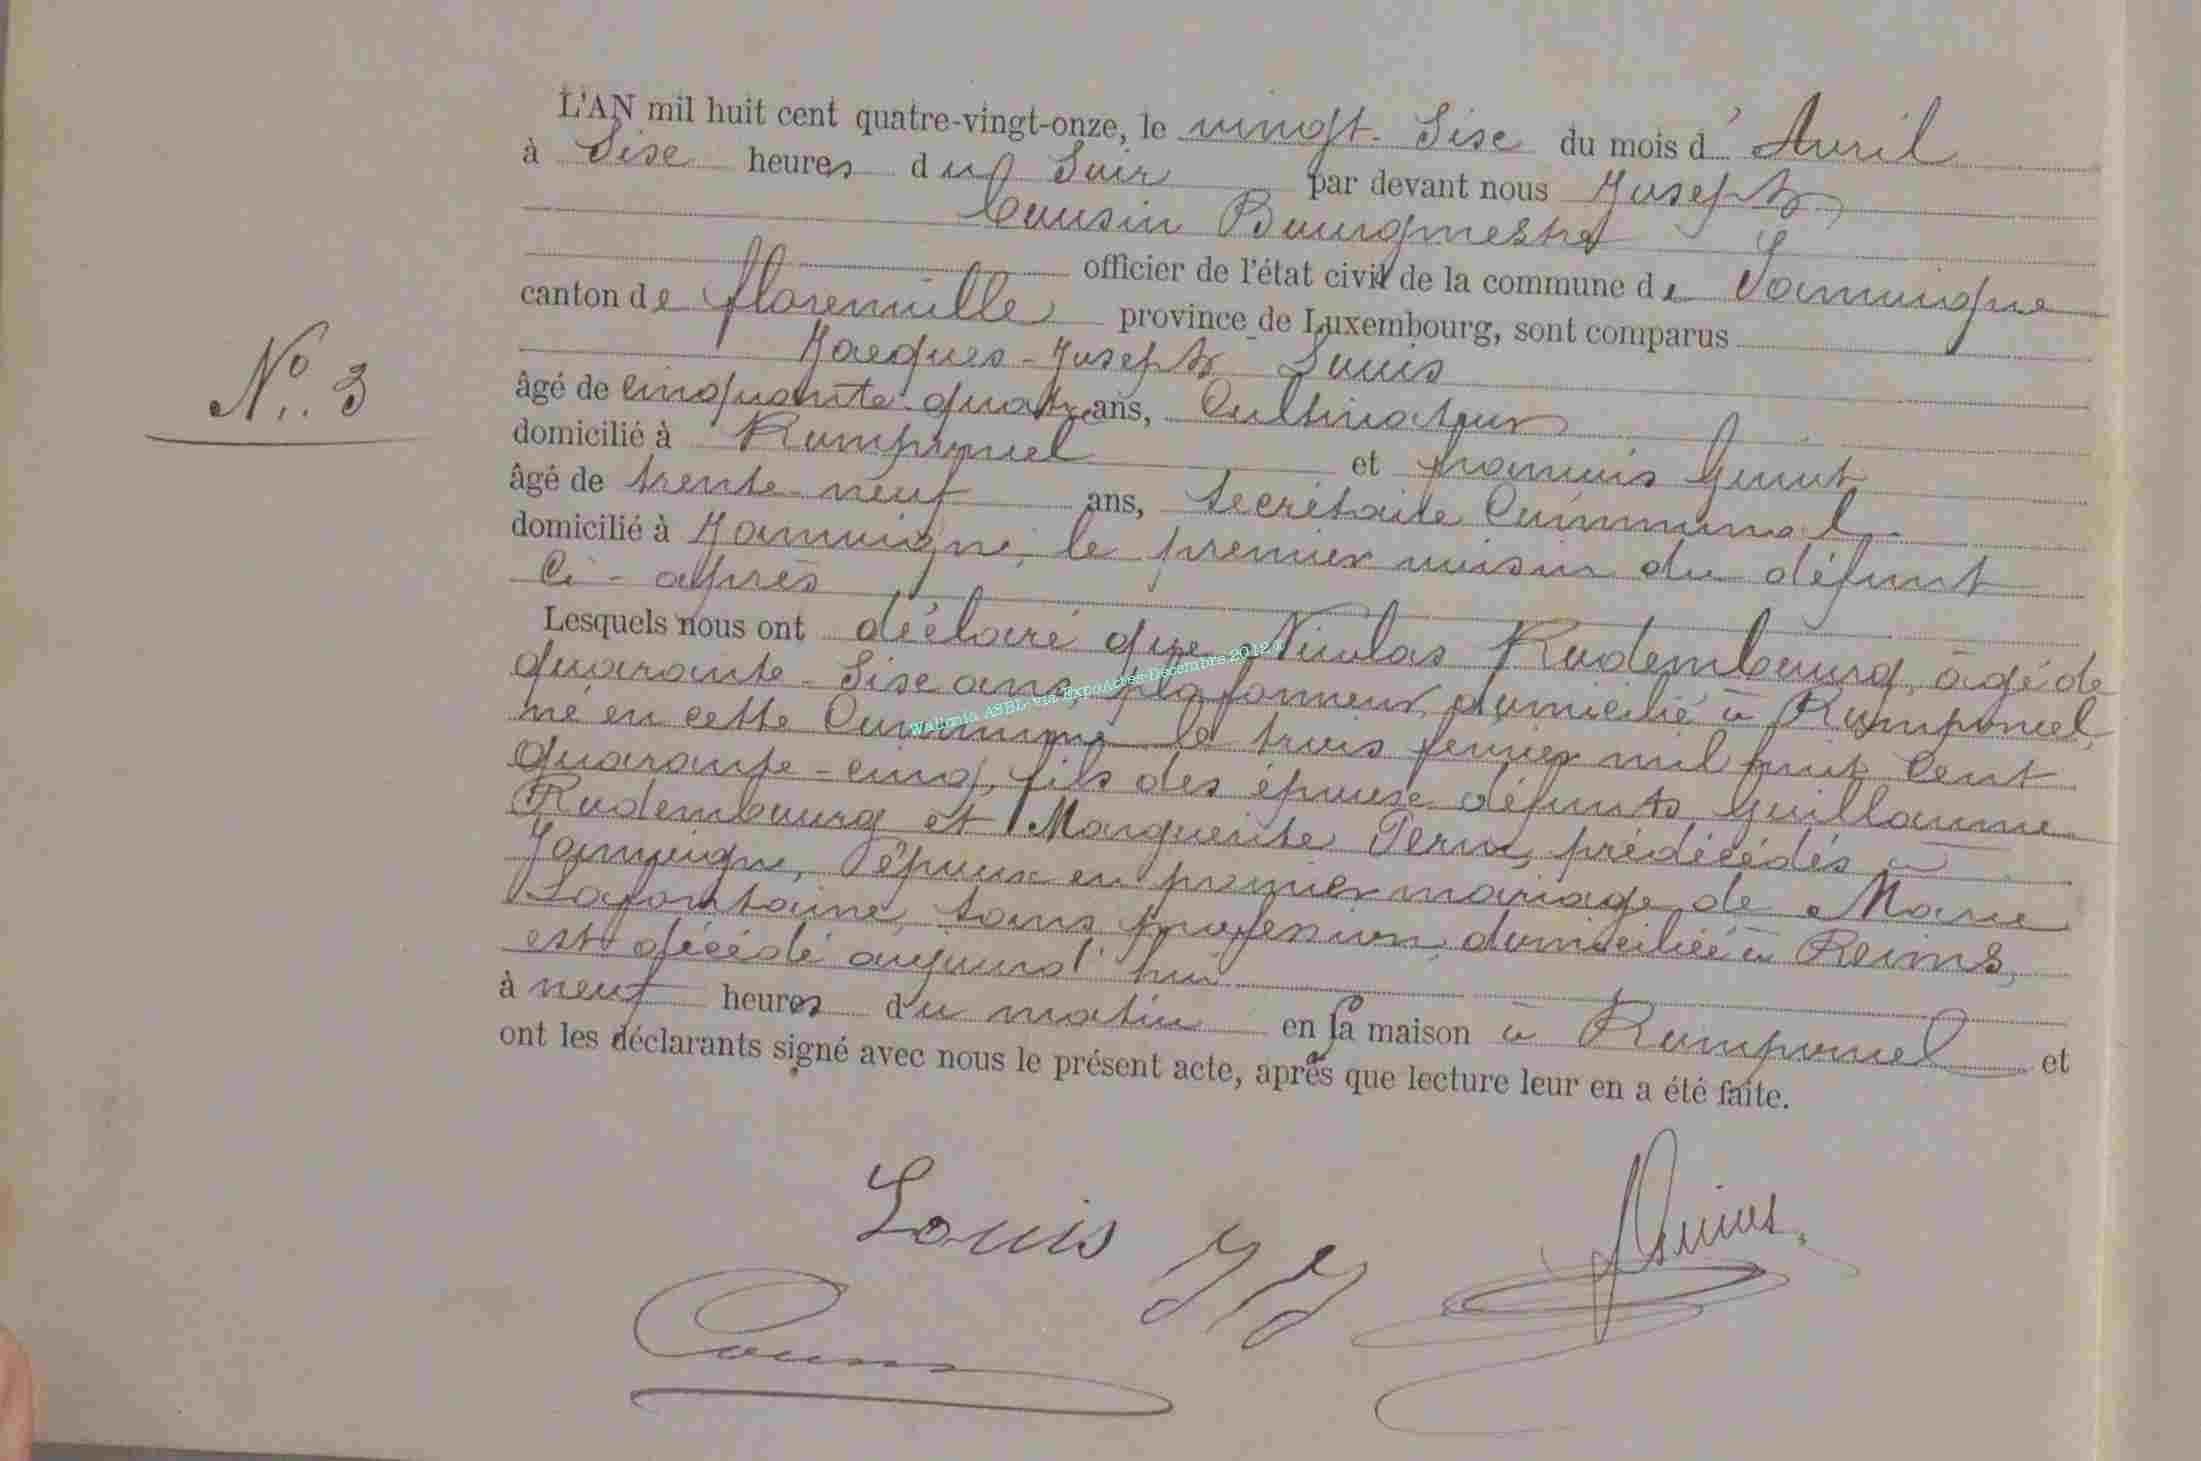 L'AN mil huit cent quatre-vingt-onze, le vingt-Sixe du mois d'Avril
à Sixe heures du Soir par devant nous Joseph
Cousin Bourgmestre
officier de l'état civil de la commune de Jamoigne
canton de florenville province de Luxembourg, sont comparus
Jacques-Joseph Louis
N° 3
âgé de cinquante quatre ans, Cultivateur
domicilié à Romponcel et françois
âgé de trente-neuf ans, Secrétaire Communal
domicilié à Jamoigne, le premier voisin du défunt
Ci-après
Lesquels nous ont déclaré que Nicolas Rodembourg, âgé de
quarante-Sixe ans, plafonneur, domicilié à Romponcel,
né en cette Commune le trois fevrier mil huit Cent
quarante-cinq, fils des époux défunts Guillaume
Rodembourg et Marguerite prédécédés à
Jamoigne, époux en premier mariage de Marie
Lafontaine, sans profession, domiciliée à Reims,
est décédé aujourd'hui
à neuf heures du matin en sa maison à Romponcel et
ont les déclarants signé avec nous le présent acte, après que lecture leur en a été faite.
Wallonia ASBL via ExpoActes Décembre 2012
Louis JJ
Cousin